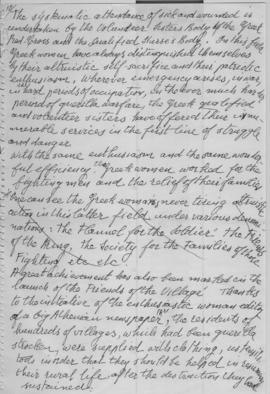 The systematic attendance of sick and wounded is
undertaken by the Volunteer Sisters Body of the Greek
Red-Cross and the Qualified Nurses Body. In this field
Greek women, have always distinguished themselves
by their altruistic self sacrifice and their patriotic
enthusiasm, wherever emergency arises, in war,
in hard periods of occupation, in the ever much harder
period of guerilla warfare, the Greek qualified
and volunteer sisters have offered their innu-
merable services in the first line of struggle
and danger.
With the same enthusiasm and the same wonder-
ful efficiency, the Greek women worked for the
fighting men and the relief of their families
One can see the Greek woman, never tiring
action in this latter field under various denomi-
nations: "The Flannel for the Soldier" the Friends
of the King, the Society for the Families of the
Fighting etc etc
A great achievement has also been marked in the
launch of the Friends of the Village" Thanks
to the initiative of the enthusiastic woman
of a big Athenian newspaper, the residents of
hundreds of villages, which had been guerilla
stricken, were supplied with clothing, utensils
tools in order that they should be helped in
their rural life after the destruction they had
sustained.